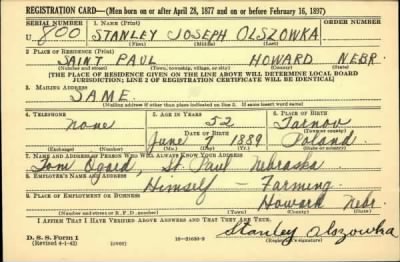 REGISTRATION CARD—(Men born on or after April 28, 1877 and on or before February 16, 1897)
SERIAL NUMBER 1. NAME (Print) ORDER NUMBER
U 800 STANLEY JOSEPH OLSZOWKA
(First) (Middle) (Last)
2. PLACE OF RESIDENCE (Print)
SAINT PAUL HOWARD NEBR.
(Number and street) (Town, township, village, or city) (County) (State)
[THE PLACE OF RESIDENCE GIVEN ON THE LINE ABOVE WILL DETERMINE LOCAL BOARD
JURISDICTION; LINE 2 OF REGISTRATION CERTIFICATE WILL BE IDENTICAL]
3. MAILING ADDRESS
SAME.
[Mailing address if other than place indicated on line 2. If same insert word same]
4. TELEPHONE 5. AGE IN YEARS 6. PLACE OF BIRTH
None 52 Tarnov
DATE OF BIRTH (Town or county)
June 7 1889 Poland
(Exchange) (Number) (Mo.) (Day) (Yr.) (State or country)
7. NAME AND ADDRESS OF PERSON WHO WILL ALWAYS KNOW YOUR ADDRESS
Tom Ogard, St. Paul Nebraska
8. EMPLOYER'S NAME AND ADDRESS
Himself — Farming
9. PLACE OF EMPLOYMENT OR BUSINESS
Howard Nebr.
(Number and street or R. F. D. number) (Town) (County) (State)
I AFFIRM THAT I HAVE VERIFIED ABOVE ANSWERS AND THAT THEY ARE TRUE.
D. S. S. Form 1
(Revised 4-1-42) (over) 16—21630-2
Stanley Olszowka
(Registrant's signature)